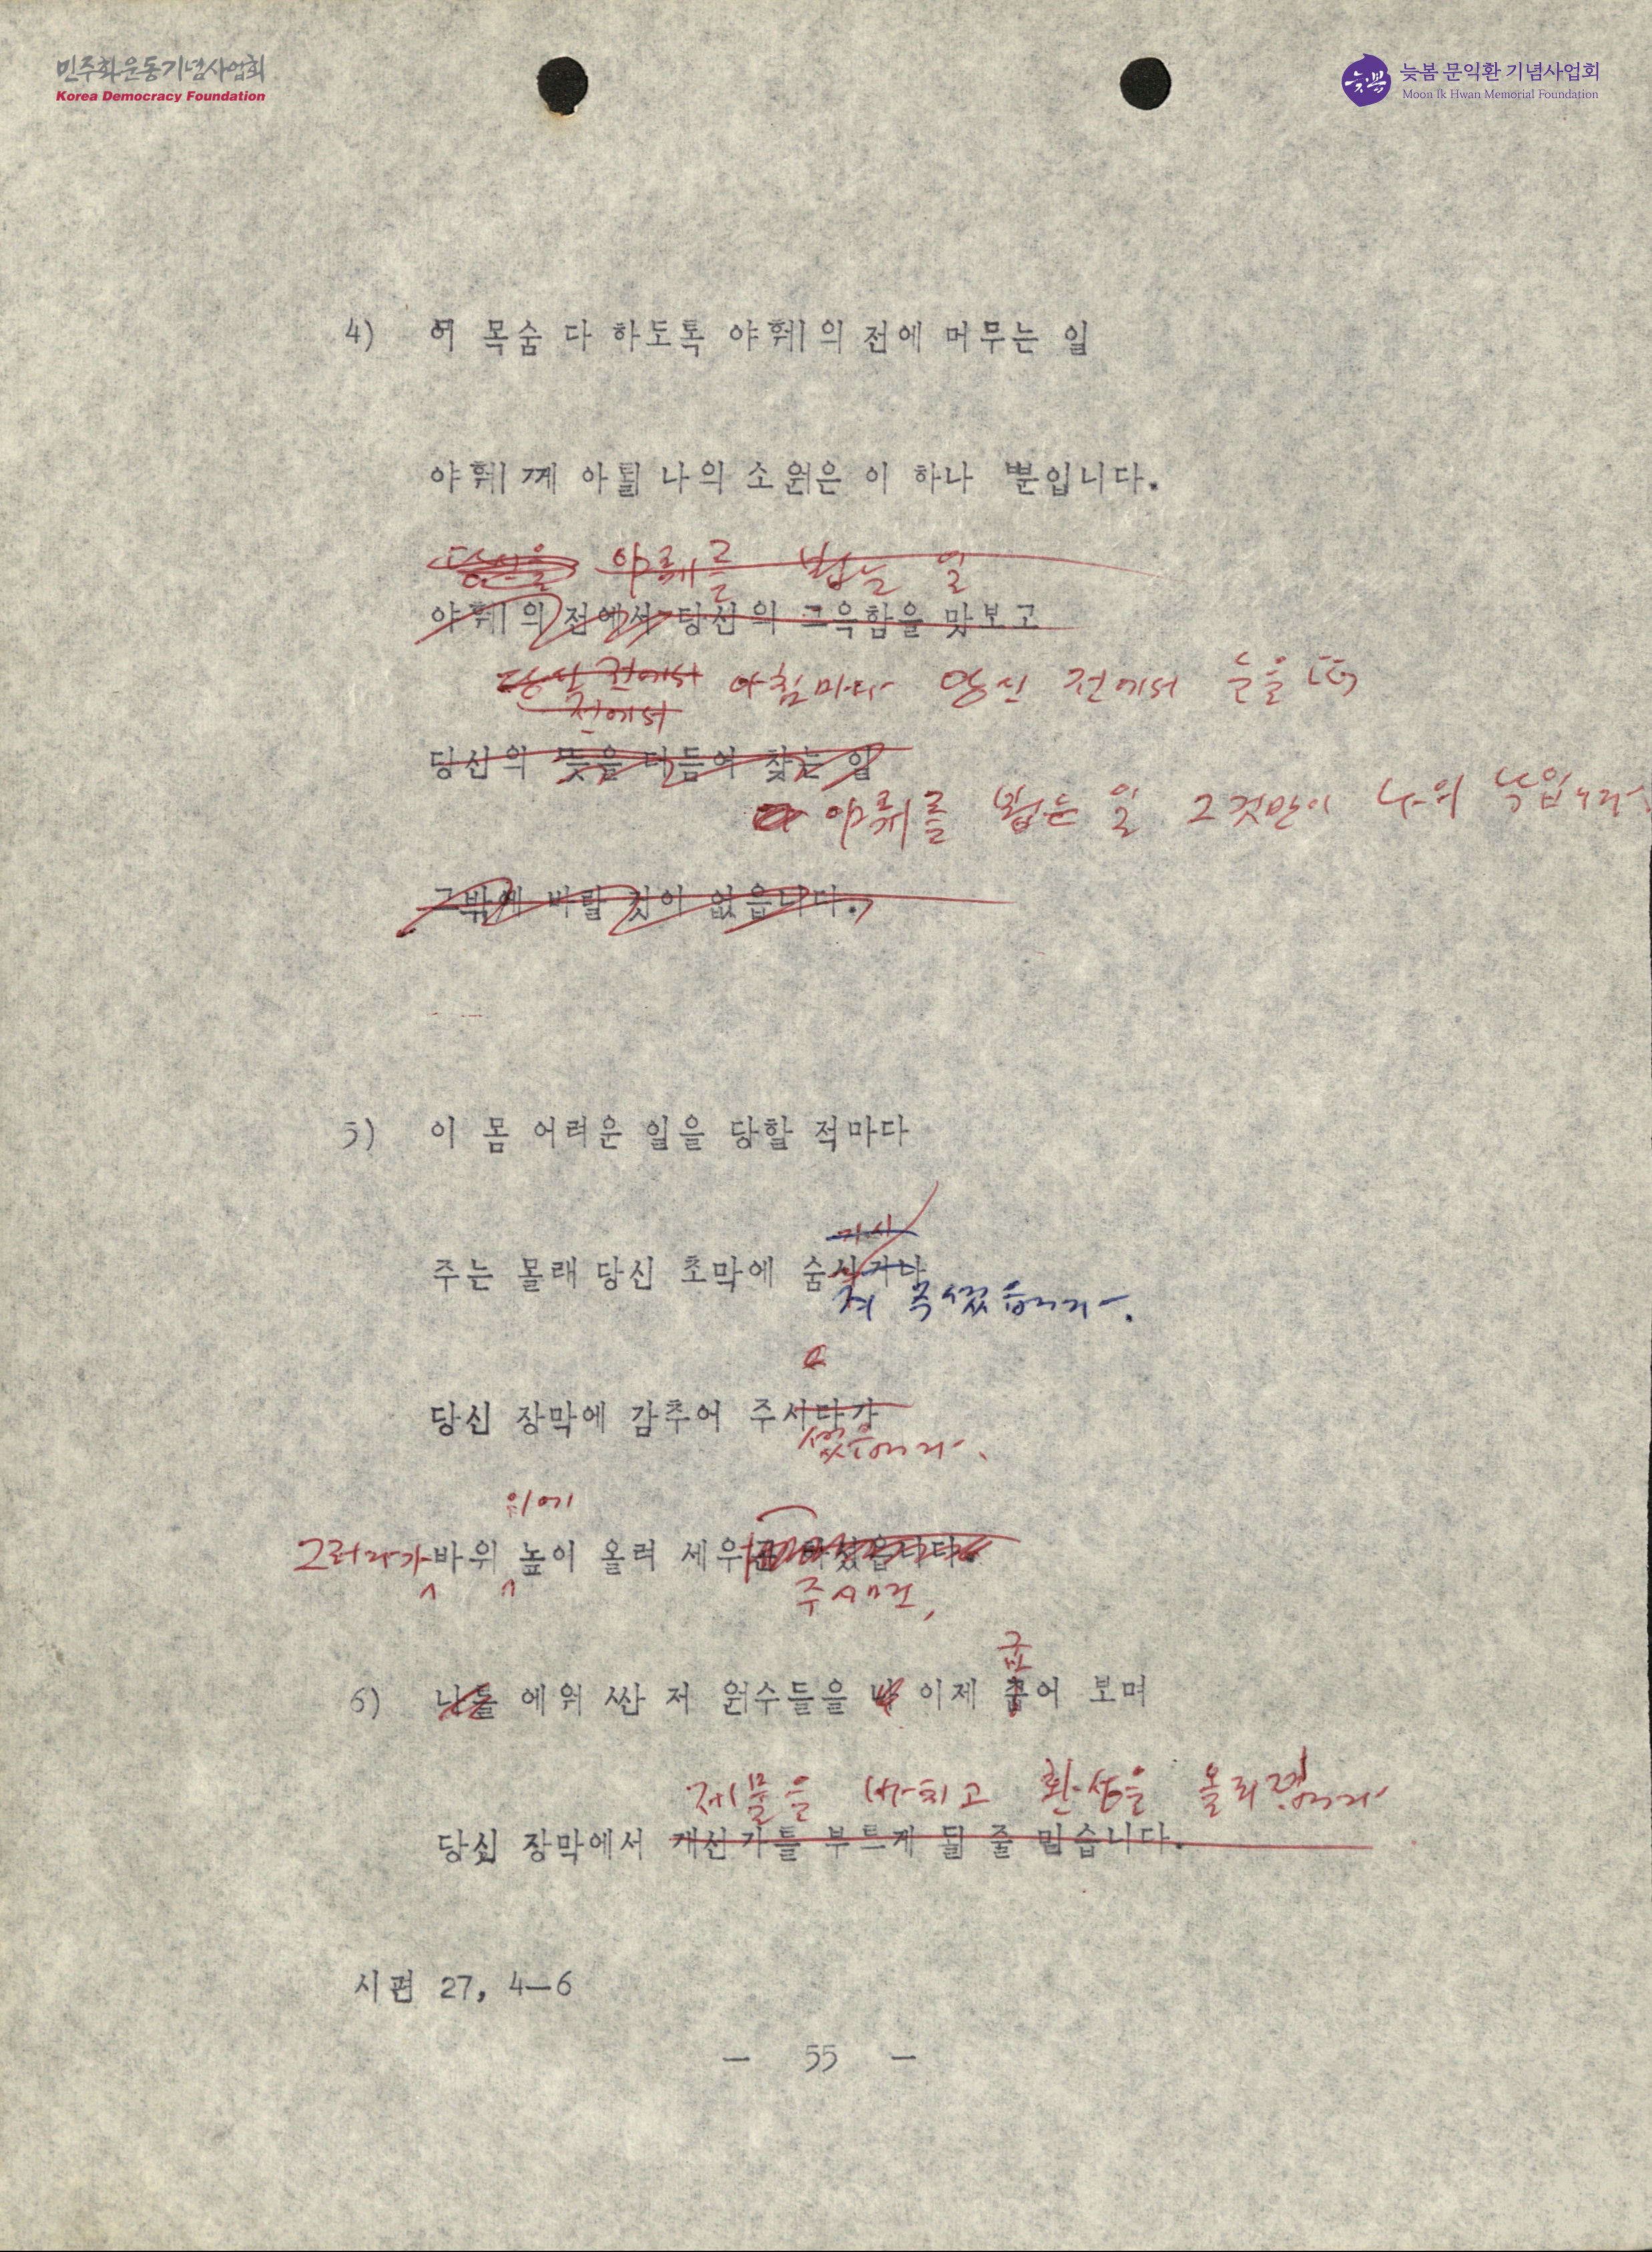 민주화운동기념사업회
Korea Democracy Foundation
늦봄
늦봄 문익환 기념사업회
Moon Ik Hwan Memorial Foundation
4) 이 목숨 다 하도록 야훼의 전에 머무는 일
야훼께 아뢸 나의 소원은 이 하나 뿐입니다.
당신을 야훼를 뵙는 일
야훼의 전에서 당신의 그윽함을 맛보고
전에서 아침마다 당신 전에서 눈을 떠
전에서
당신의 뜻을 더듬어 찾는 일
야훼를 뵙는 일 그것만이 나의 낙입니다.
그밖에 바랄 것이 없읍니다.
5) 이 몸 어려운 일을 당할 적마다
기시
주는 몰래 당신 초막에 숨
져 주셨읍니다.
당신 장막에 감추어 주시다가
셨읍니다.
위에
그러다가 바위 높이 올려 세우
주시면,
굽
6) 나를 에워 싼 저 원수들을 이제 어 보며
제물을 바치고 환성을 올리렵니다
당신 장막에서 개선가를 부르게 될 줄 믿습니다.
시편 27, 4—6
— 55 —